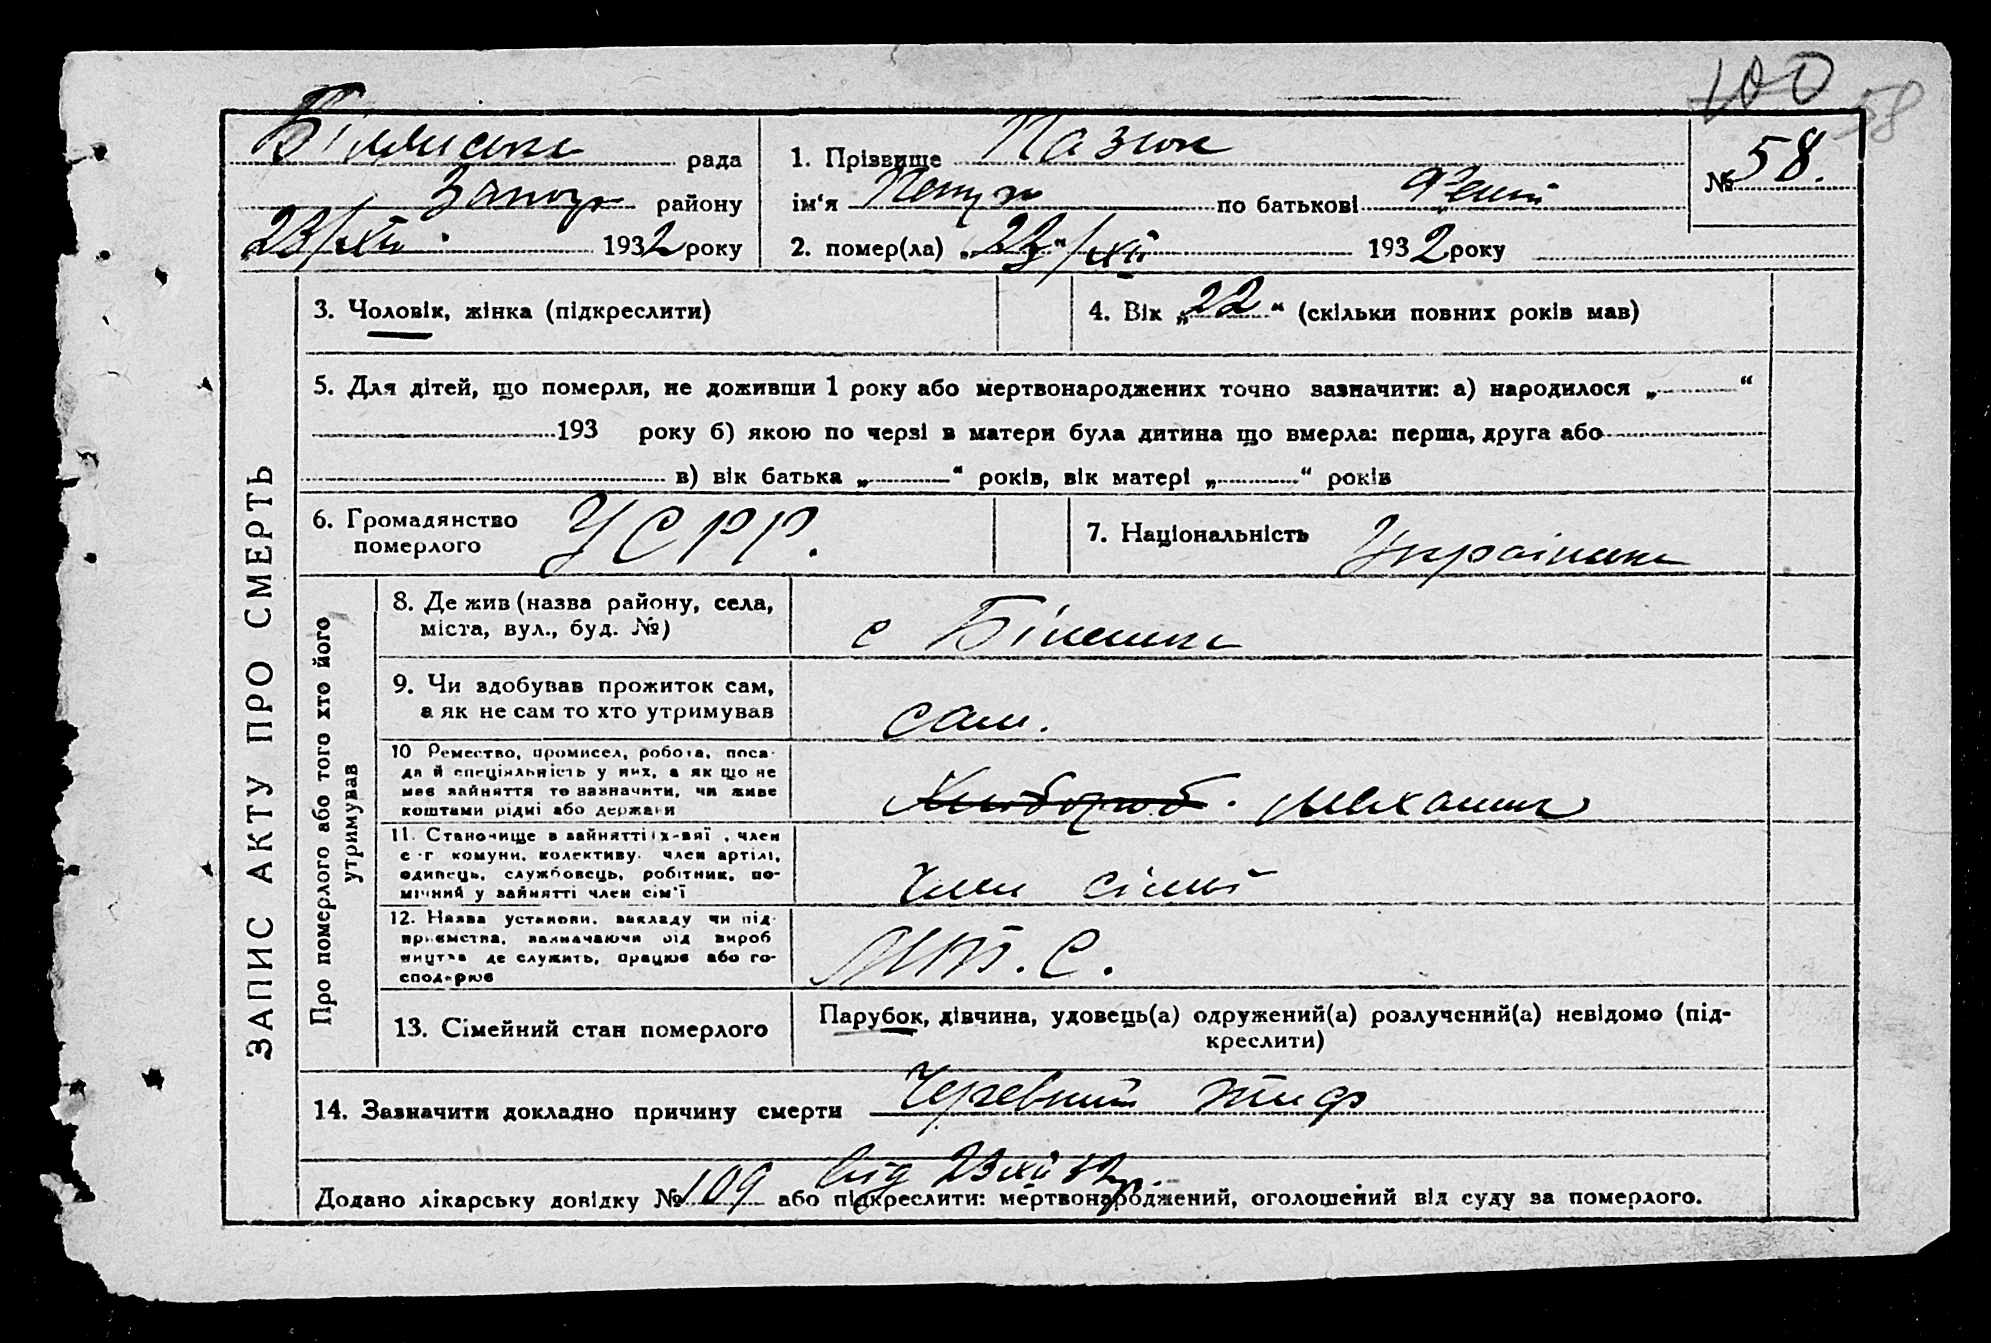 100
58
рада
1. Прізвище Пазюк
№ 58.
району
ім'я по батькові
23/XII 1932 року
2. помер(ла) „23“/XII 1932 року
ЗАПИС АКТУ ПРО СМЕРТЬ
3. Чоловік, жінка (підкреслити)
4. Вік „22“ (скільки повних років мав)
5. Для дітей, що померли, не доживши 1 року або мертвонароджених точно зазначити: а) народилося „ “
193 року б) якою по черзі в матери була дитина що вмерла: перша, друга або
в) вік батька „ “ років, вік матері „ “ років
6. Громадянство
померлого
УСРР.
7. Національність
Про померлого або того хто його
утримував
8. Де жив (назва району, села,
міста, вул., буд. №)
с
9. Чи здобував прожиток сам,
а як не сам то хто утримував
сам.
10 Ремество, промисел, робота, поса-
да й спеціяльність у них, а як що не
має зайняття то зазначити, чи живе
коштами рідні або держави
Хлібороб. механик
11. Становище в зайнятті , член
с-г комуни, колективу, член артілі,
одинець, службовець, робітник, по-
мічний у зайнятті член сім'ї
член сімї
12. Назва установи, закладу чи під-
приємства, зазначаючи від вироб
ництва де служить, працює або го-
сподарює
М.Т.С.
13. Сімейний стан померлого
Парубок, дівчина, удовець(а) одружений(а) розлучений(а) невідомо (під-
креслити)
14. Зазначити докладно причину смерти Черевний тиф
від 23/XII 32 р.
Додано лікарську довідку № 109 або підкреслити: мертвонароджений, оголошений від суду за померлого.